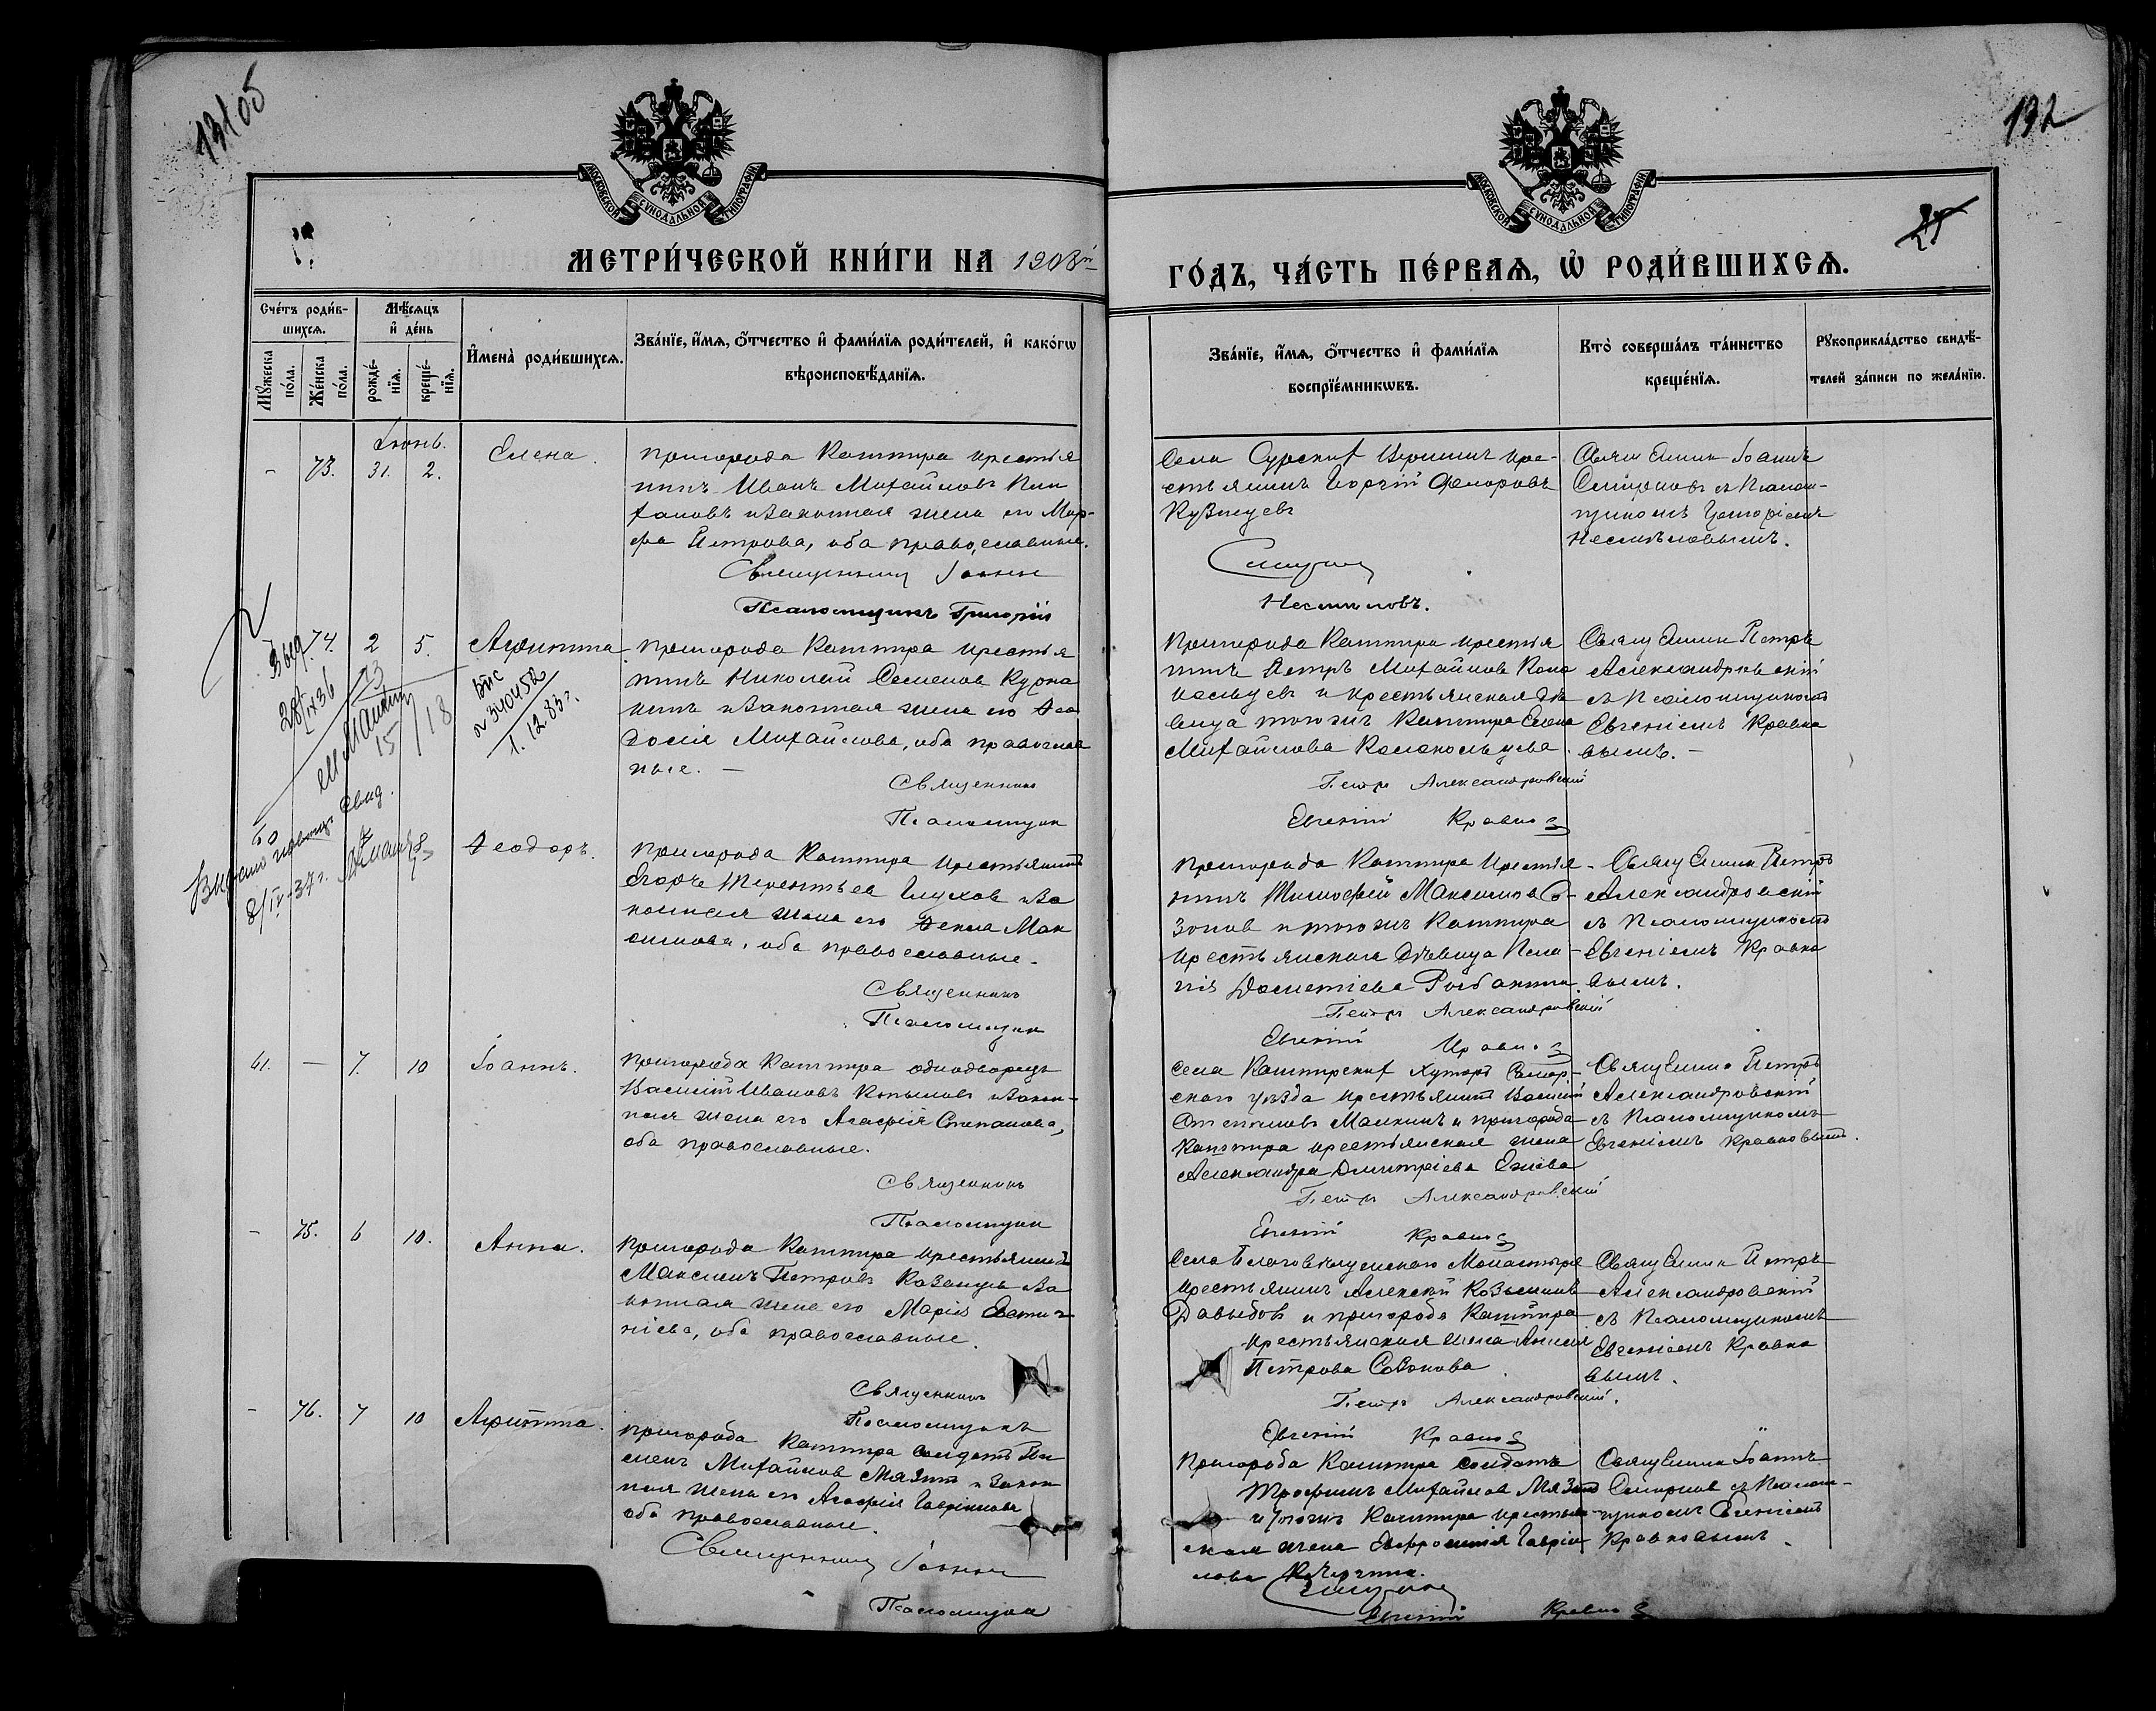 13105
132
МОСКОВСКОЙ СѴНОДАЛЬНОЙ ТИПОГРАФІИ
МОСКОВСКОЙ СѴНОДАЛЬНОЙ ТИПОГРАФІИ
25
МЕТРИ́ЧЕСКОЙ КНИ́ГИ НА 1903й
ГО́ДЪ, ЧА́СТЬ ПЕ́РВАЯ, Ѡ РОДИ́ВШИХСЯ.
Сче́тъ роди́в-
шихся.
Мѣ́сяцъ
и де́нь
Мꙋ́жеска
по́ла.
Же́нска
по́ла.
рожде́-
нїя.
креще́-
нїя.
И́мена̀ роди́вшихся.
Зва́нїе, и́мя, ѻ́тчество и фами́лїя роди́телей, и како́гѡ
вѣроисповѣ́данїя.
Зва́нїе, и́мя, ѻ́тчество и фами́лїя
воспрїе́мникѡвъ.
Кто̀ соверша́лъ та́инство
креще́нїя.
Рꙋкоприкла́дство свидѣ́-
телей за́писи по жела́нїю.
Іюнь.
- 73. 31. 2. Елена.
пригорода Каштира крестья
нинъ Иванъ Михайловъ
и законная жена его Мар-
фа Петрова, оба православные.
Священникъ Іоаннъ
Псаломщикъ Григорій
Села
крестьянинъ Георгій Федоровъ
Кузнецевъ
Смирнов
Несмѣловъ.
Священник Іоаннъ
Смирновъ съ Псалом-
щикомъ Григоріемъ
Несмѣловымъ.
74. 2 5. Агриппина
пригорода Каштира крестья
нинъ Николай Семенов
и законная жена его Ѳео
досія Михайлова, оба православ
ные. —
Священникъ
Псаломщик
Пригорода Каштира крестья
нинъ Петръ Михайлов Коло
кольцевъ и крестьянская дѣ
вица того же Каштира Елена
Михайлова Колокольцева.
Петръ Александровский
Евгений Кравков
Священник Петръ
Александровскій
съ Псаломщикомъ
Евгеніемъ Кравко
вымъ. —
28/IX 36
15/18
№ 340452
1.12.83г.
8/IV-37г.
60 Ѳеодоръ.
пригорода Каштира крестьянинъ
Егоръ Терентьев Глухов и за
конная жена его Ѳекла Мак
симова, оба православные.
Священникъ
Псаломщик
пригорода Каштира крестья-
нинъ Тимофей Максимов Со-
зонов и того же Каштира
крестьянская дѣвица Пела-
гія Дометіева Рыбакина.
Петръ Александровский
Евгений Кравков
Священник Петръ
Александровскій
съ Псаломщикомъ
Евгеніемъ Кравко
вымъ.
61. — 7. 10 Іоаннъ.
пригорода Каштира однодворецъ
Василій Ивановъ Копыловъ и закон-
ная жена его Агафія Степанова,
оба православные.
Священникъ
Псаломщик
Села Каштирских Хуторъ Самар-
скаго уѣзда крестьянинъ Василій
Маркинъ и пригорода
Каштира крестьянская жена
Александра Дмитріева
Петръ Александровский
Евгений Кравков
Священник Петръ
Александровскій
съ Псаломщикомъ
Евгеніемъ Кравковымъ.
- 75. 6 10. Анна.
Пригорода Каштира крестьянинъ
Максимъ Петровъ Казанцев и за
конная жена его Марія Евти-
хіева, оба православные.
Священникъ
Псаломщикъ
Села Благовѣщенскаго Монастыря
крестьянинъ Алексѣй Козьминъ
Давыдов и пригорода Каштира
крестьянская жена Анисія
Петрова Созонова.
Петръ Александровский.
Евгений Кравков
Священник Петръ
Александровскій
съ Псаломщикомъ
Евгеніемъ Кравко
вымъ.
- 76. 7 10 Агриппина.
пригорода Каштира солдатъ Пи
менъ Михайлов Мязин и закон
ная жена его Агафія Гаврилова
оба православные.
Священникъ Іоаннъ
Псаломщик
Пригорода Каштира солдатъ
Трофимъ Михайлов Мязин
и того же Каштира крестьян
ская жена Евфросинія Гаври
лова
Смирнов
Евгений Кравков
Священник Іоаннъ
Смирнов съ Псалом-
щикомъ Евгеніемъ
Кравковымъ.